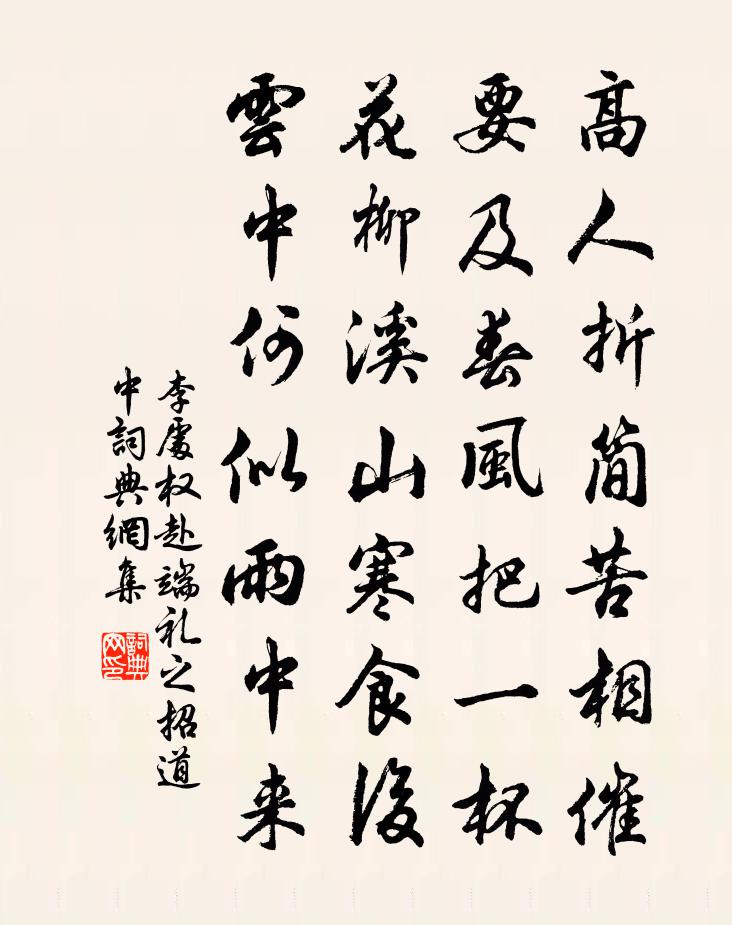 高人折简苦相催
要及春風把一杯
花柳溪山寒食後
雲中何似雨中来
李處权赴端礼之招道
中詞典網集
詞典網印